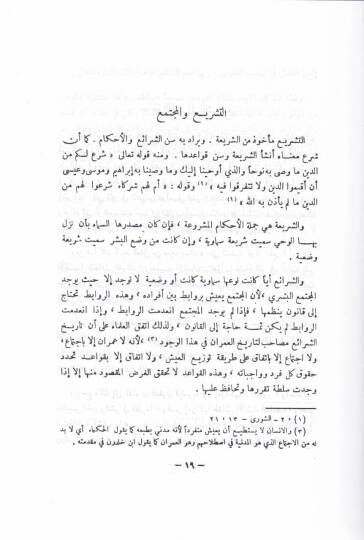 التشريع والمجتمع
التشريع مأخوذ من الشريعة . ويراد به سن الشرائع والأحكام . كما أن
شرع معناه أنشأ الشريعة وسن قواعدها . ومنه قوله تعالى « شرع لكم من
الدين ما وصى به نوحاً والذي أوحينا إليك وما وصينا به إبراهيم وموسى وعيسى
أن أقيموا الدين ولا تتفرقوا فيه » (١) وقوله : « أم لهم شركاء شرعوا لهم من
الدين ما لم يأذن به الله » (٢)
والشريعة هي جملة الأحكام المشروعة ، فإن كان مصدرها السماء بأن نزل
بها الوحي سميت شريعة سماوية ، وإن كانت من وضع البشر سميت شريعة
وضعية .
والشرائع أياً كانت نوعها سماوية كانت أو وضعية لا توجد إلا حيث يوجد
المجتمع البشري ، لأن المجتمع يعيش بروابط بين أفراده ، وهذه الروابط تحتاج
إلى قانون ينظمها ، فإذا لم يوجد المجتمع انعدمت الروابط ، وإذا انعدمت
الروابط لم يكن ثمة حاجة إلى القانون ، ولذلك اتفق العلماء على أن تاريخ
الشرائع مصاحب لتاريخ العمران في هذا الوجود (٣) ، لأنه لا عمران إلا باجتماع ،
ولا اجتماع إلا باتفاق على طريقة توزيع العيش ، ولا اتفاق إلا بقواعد تحدد
حقوق كل فرد وواجباته ، وهذه القواعد لا تحقق الغرض المقصود منها إلا إذا
وجدت سلطة تقررها وتحافظ عليها .
(١) ، (٢) - الشورى - ١٣ ، ٢١
(٣) والانسان لا يستطيع أن يعيش منفرداً لأنه مدني بطبعه كما يقول الحكماء أي لا بد
له من الاجتماع الذي هو المدنية في اصطلاحهم وهو العمران كما يقول ابن خلدون في مقدمته .
- ١٩ -